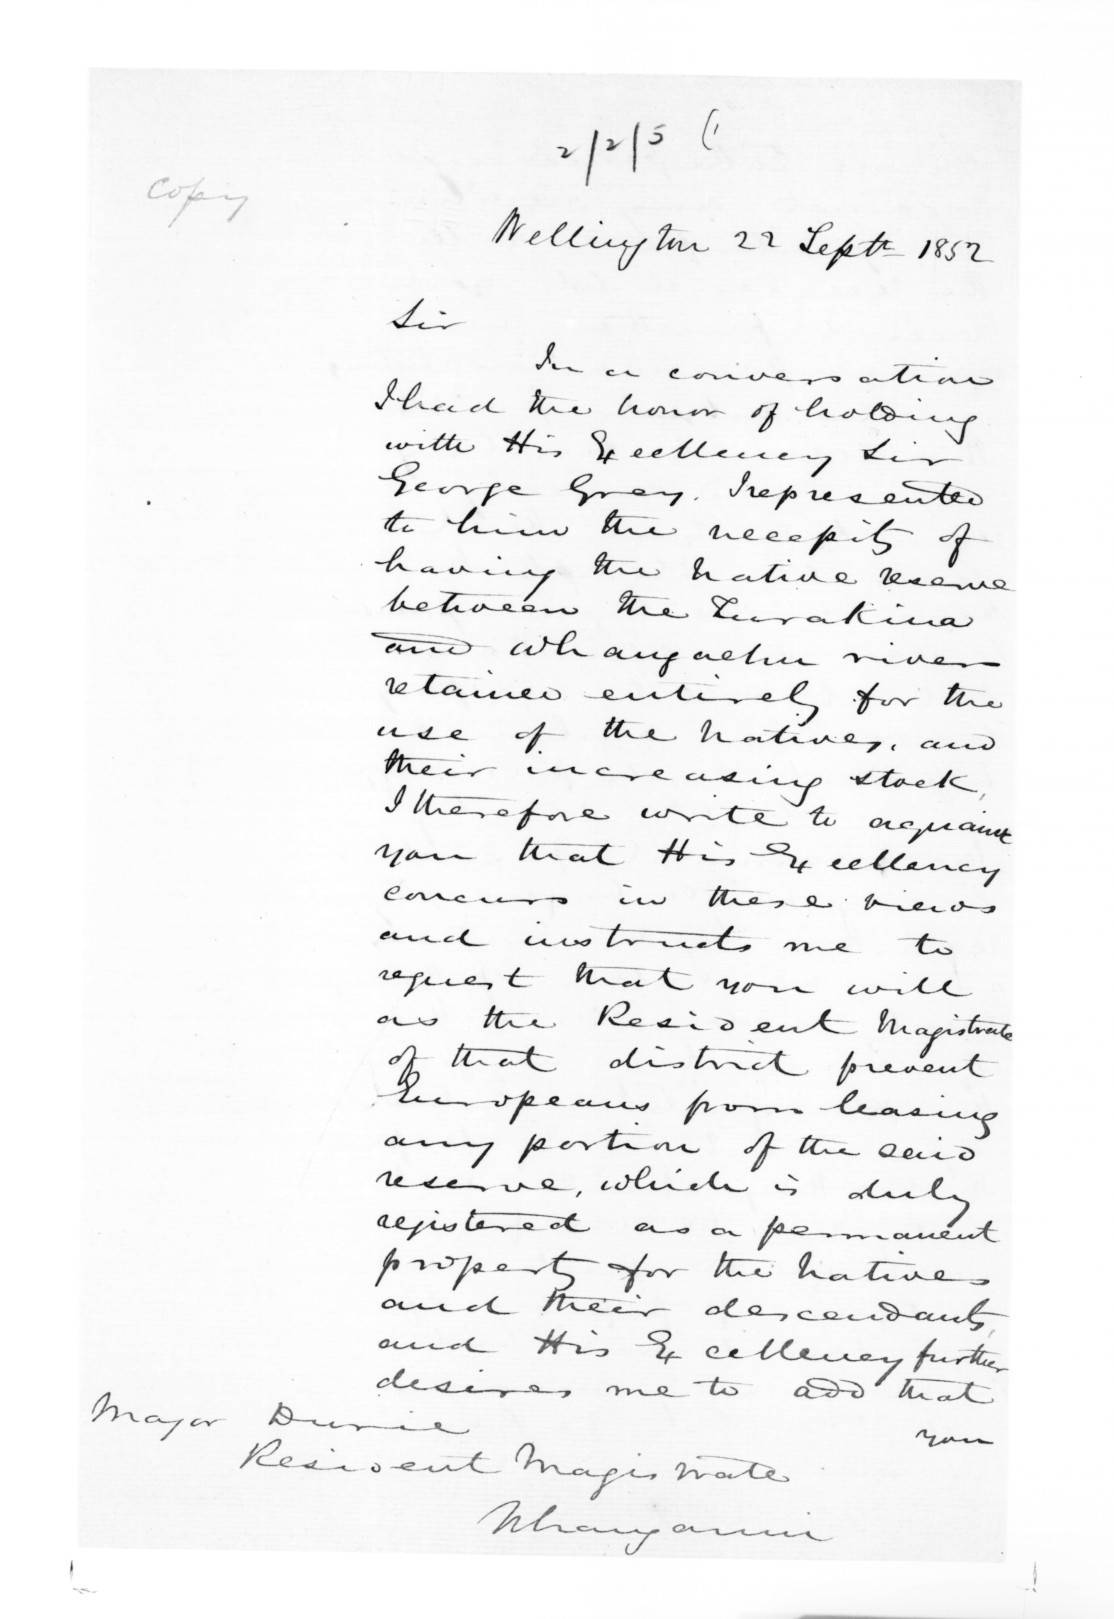 2/2/5 (1
Copy
Wellington 22 Septh 1852
Sir
In a conversation
I had the honor of holding
with His Excellency Sir
George Grey. I represented
to him the necessity of
having the Native reserve
between the Turakina
and Whangaehu rivers
retained entirely for the
use of the Natives, and
their increasing stock,
I therefore write to aquaint
you that His Excellency
concurs in these views
and instructs me to
request that you will
as the Resident Magistrate
of that district prevent
Europeans from leasing
any portion of the said
reserve, which is duly
registered as a permanent
property for the Natives
and their descendants,
and His Excellency further
desires me to add that
you
Major Durie
Resident Magistrate
Whanganui